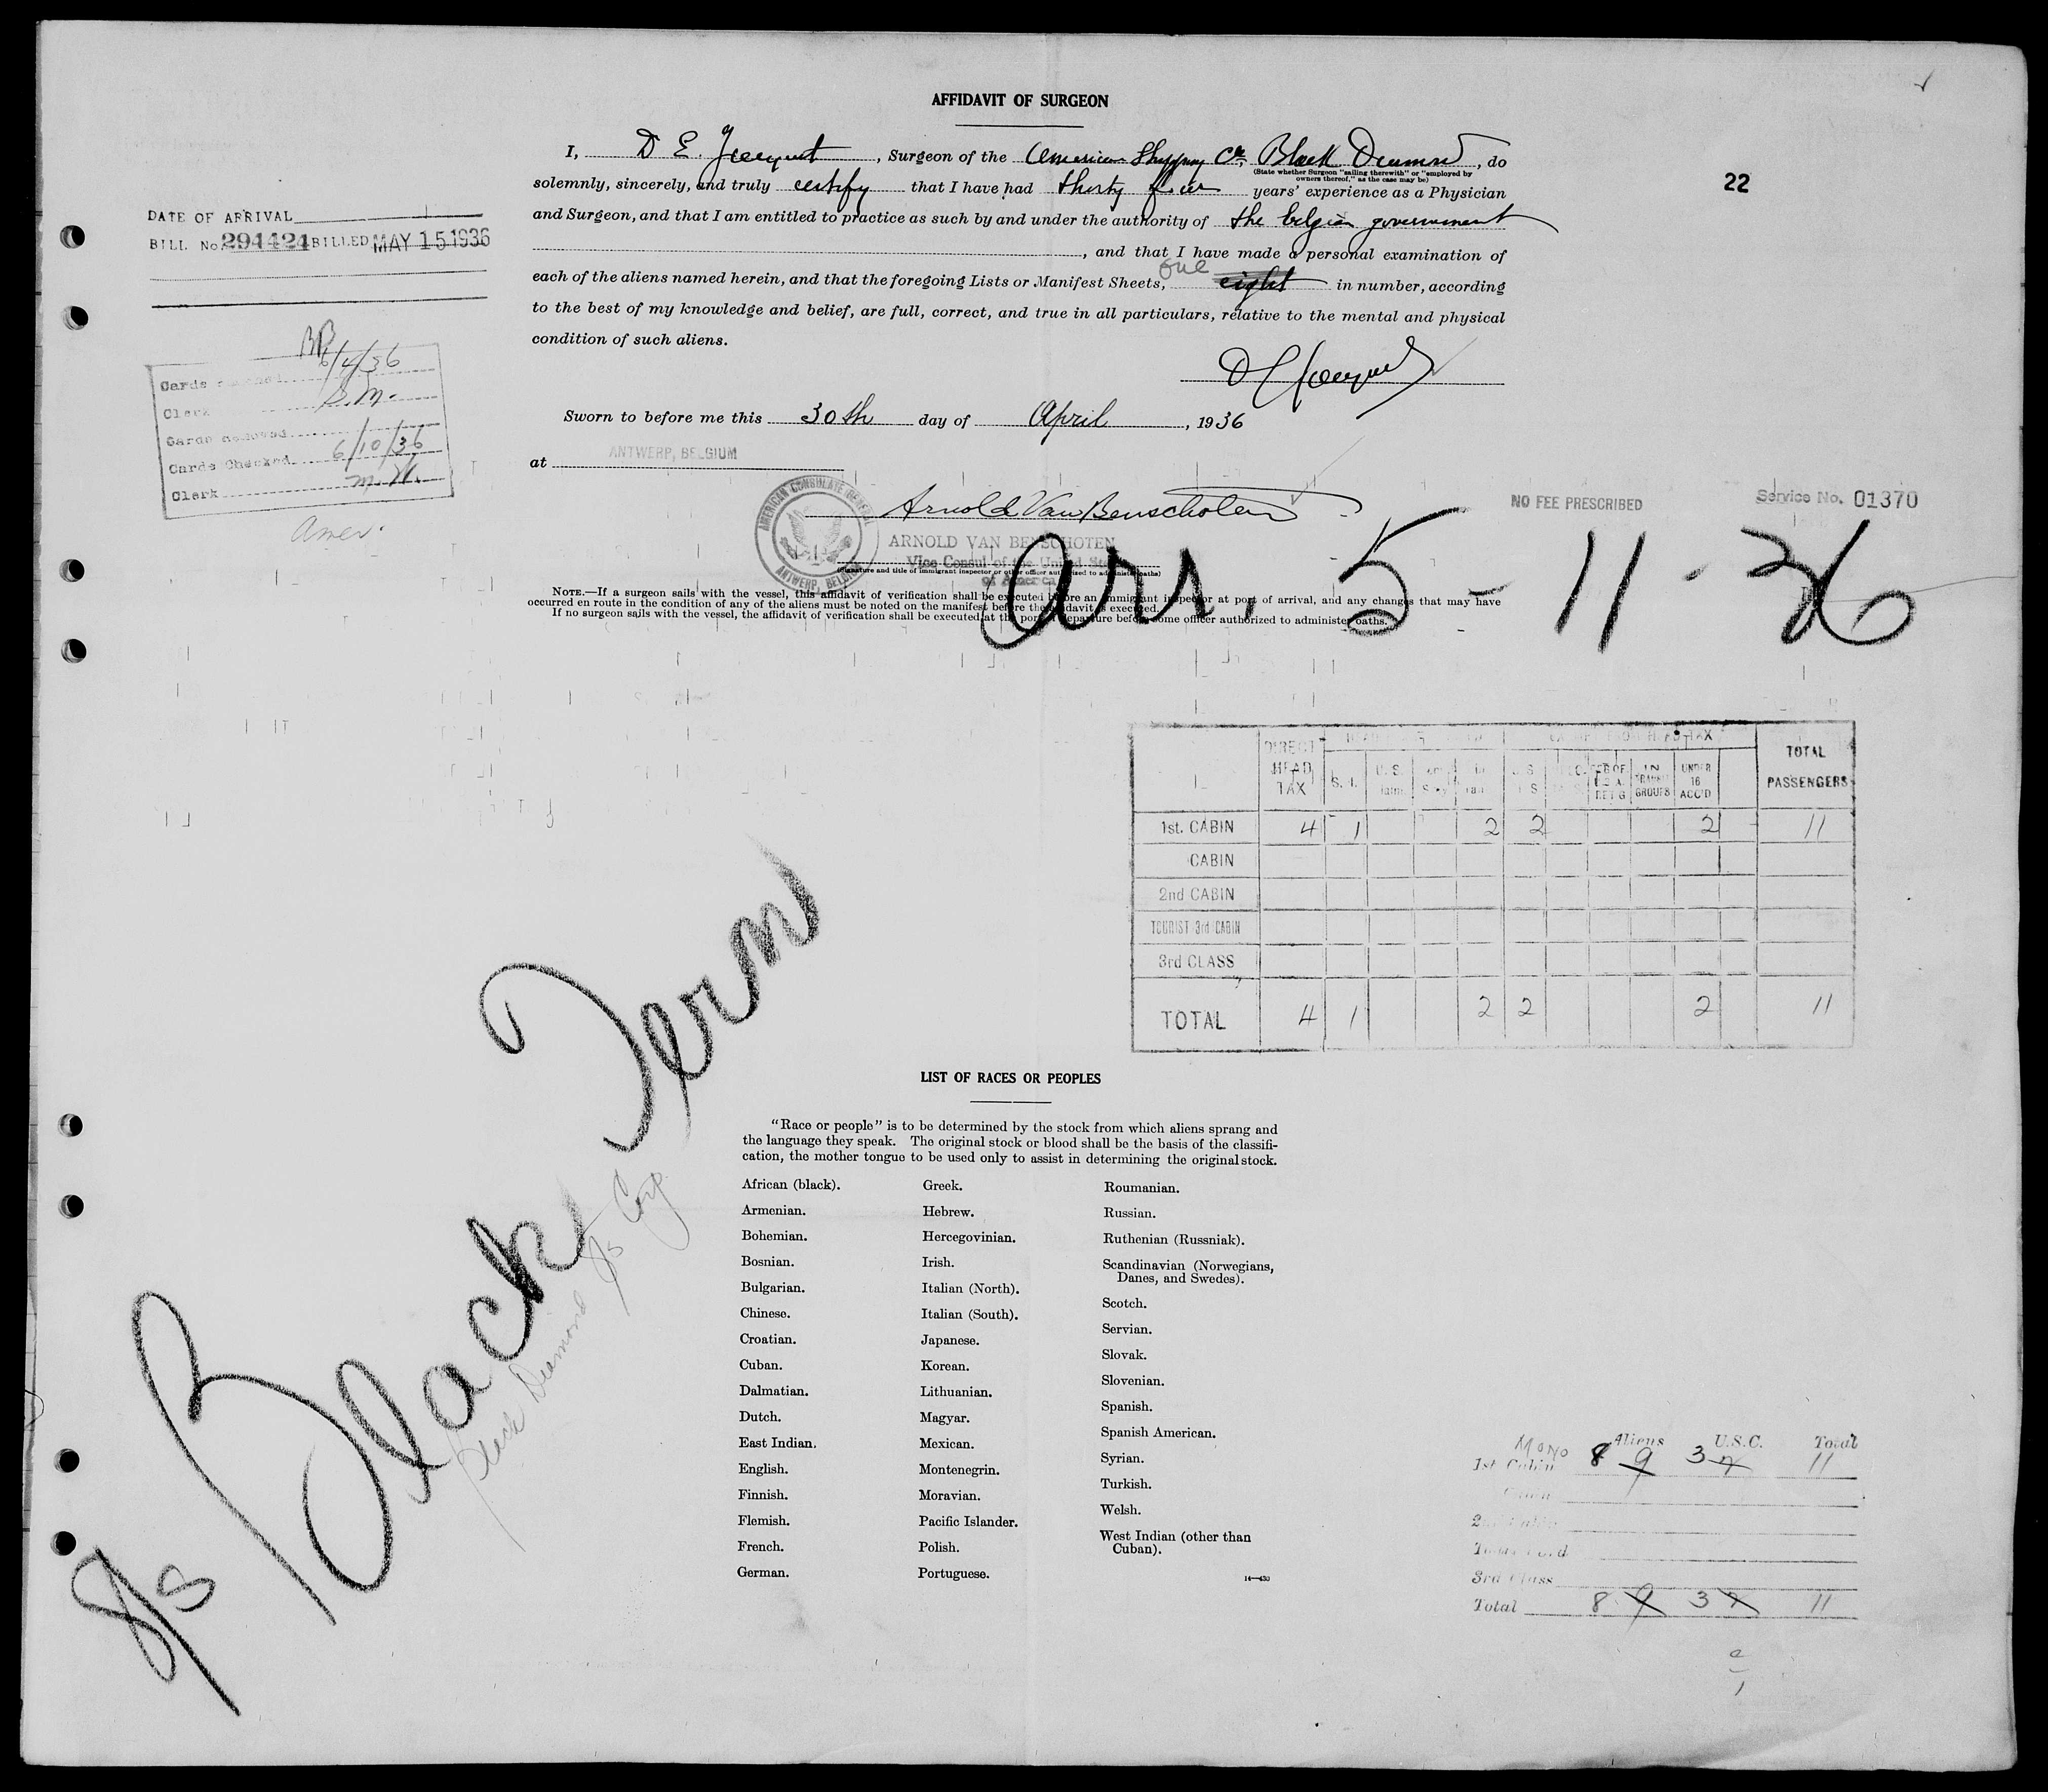 AFFIDAVIT OF SURGEON
I, D E. , Surgeon of the American Shipping Co, Black Diamond, do
(State whether Surgeon "sailing therewith" or "employed by
owners thereof," as the case may be)
solemnly, sincerely, and truly certify that I have had thirty years' experience as a Physician
and Surgeon, and that I am entitled to practice as such by and under the authority of the belgian government
, and that I have made a personal examination of
one
each of the aliens named herein, and that the foregoing Lists or Manifest Sheets, eight in number, according
to the best of my knowledge and belief, are full, correct, and true in all particulars, relative to the mental and physical
condition of such aliens.
Sworn to before me this 30th day of April, 1936
at ANTWERP, BELGIUM
22
DATE OF ARRIVAL
BILL No. 294424 BILLED MAY 15 1936
BB
Cards 6/4/36
Clerk S.M.
Cards
Cards Checked 6/10/36
Clerk M.H.
Amer.
AMERICAN CONSULATE GENERAL
ANTWERP, BELGIUM
Arnold Van Benschoten
ARNOLD VAN BENSCHOTEN
Vice Consul of the United States
of America
(Signature and title of immigrant inspector or other officer authorized to administer oaths)
NO FEE PRESCRIBED
Service No. 01370
Arr. 5 - 11 - 36
NOTE.—If a surgeon sails with the vessel, this affidavit of verification shall be executed before an immigrant inspector at port of arrival, and any changes that may have
occurred en route in the condition of any of the aliens must be noted on the manifest before the affidavit is executed.
If no surgeon sails with the vessel, the affidavit of verification shall be executed at the port of departure before some officer authorized to administer oaths.
DIRECT HEAD TAX S. I. U. S. IN TRANSIT GROUPS UNDER 16 ACC'D TOTAL PASSENGERS
1st. CABIN 4 1 2 2 2 11
CABIN
2nd CABIN
TOURIST 3rd CABIN
3rd CLASS
TOTAL 4 1 2 2 2 11
S/S Black Tern
Black Diamond S/S Corp.
LIST OF RACES OR PEOPLES
"Race or people" is to be determined by the stock from which aliens sprang and
the language they speak. The original stock or blood shall be the basis of the classifi-
cation, the mother tongue to be used only to assist in determining the original stock.
African (black).
Armenian.
Bohemian.
Bosnian.
Bulgarian.
Chinese.
Croatian.
Cuban.
Dalmatian.
Dutch.
East Indian.
English.
Finnish.
Flemish.
French.
German.
Greek.
Hebrew.
Hercegovinian.
Irish.
Italian (North).
Italian (South).
Japanese.
Korean.
Lithuanian.
Magyar.
Mexican.
Montenegrin.
Moravian.
Pacific Islander.
Polish.
Portuguese.
Roumanian.
Russian.
Ruthenian (Russniak).
Scandinavian (Norwegians,
Danes, and Swedes).
Scotch.
Servian.
Slovak.
Slovenian.
Spanish.
Spanish American.
Syrian.
Turkish.
Welsh.
West Indian (other than
Cuban).
14—430
Mono Aliens U.S.C. Total
1st Cabin 8 9 3 2 11
Cabin
2nd Cabin
3rd Class
Total 8 9 3 2 11